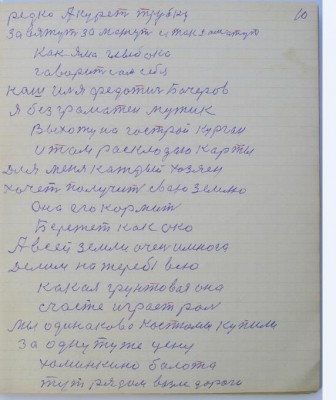 10
редко Акурет трубку
Как яма глыбока
гаварит сам себя
наш имя федотич Бочеров
Я без граматеи мужик
Выхожу на гострой Курган
итам расклодую карты
Для меня каждый хозяен
хочет получит сваю землю
Она его кормит
Бережет как око
А всей земли очен имнога
Делим на жереби всю
какая грунтовая она
счасте играет рол
мы одинаково костюмы купили
За одну туже цену
хоминкино балота
тут рядом возле дороги